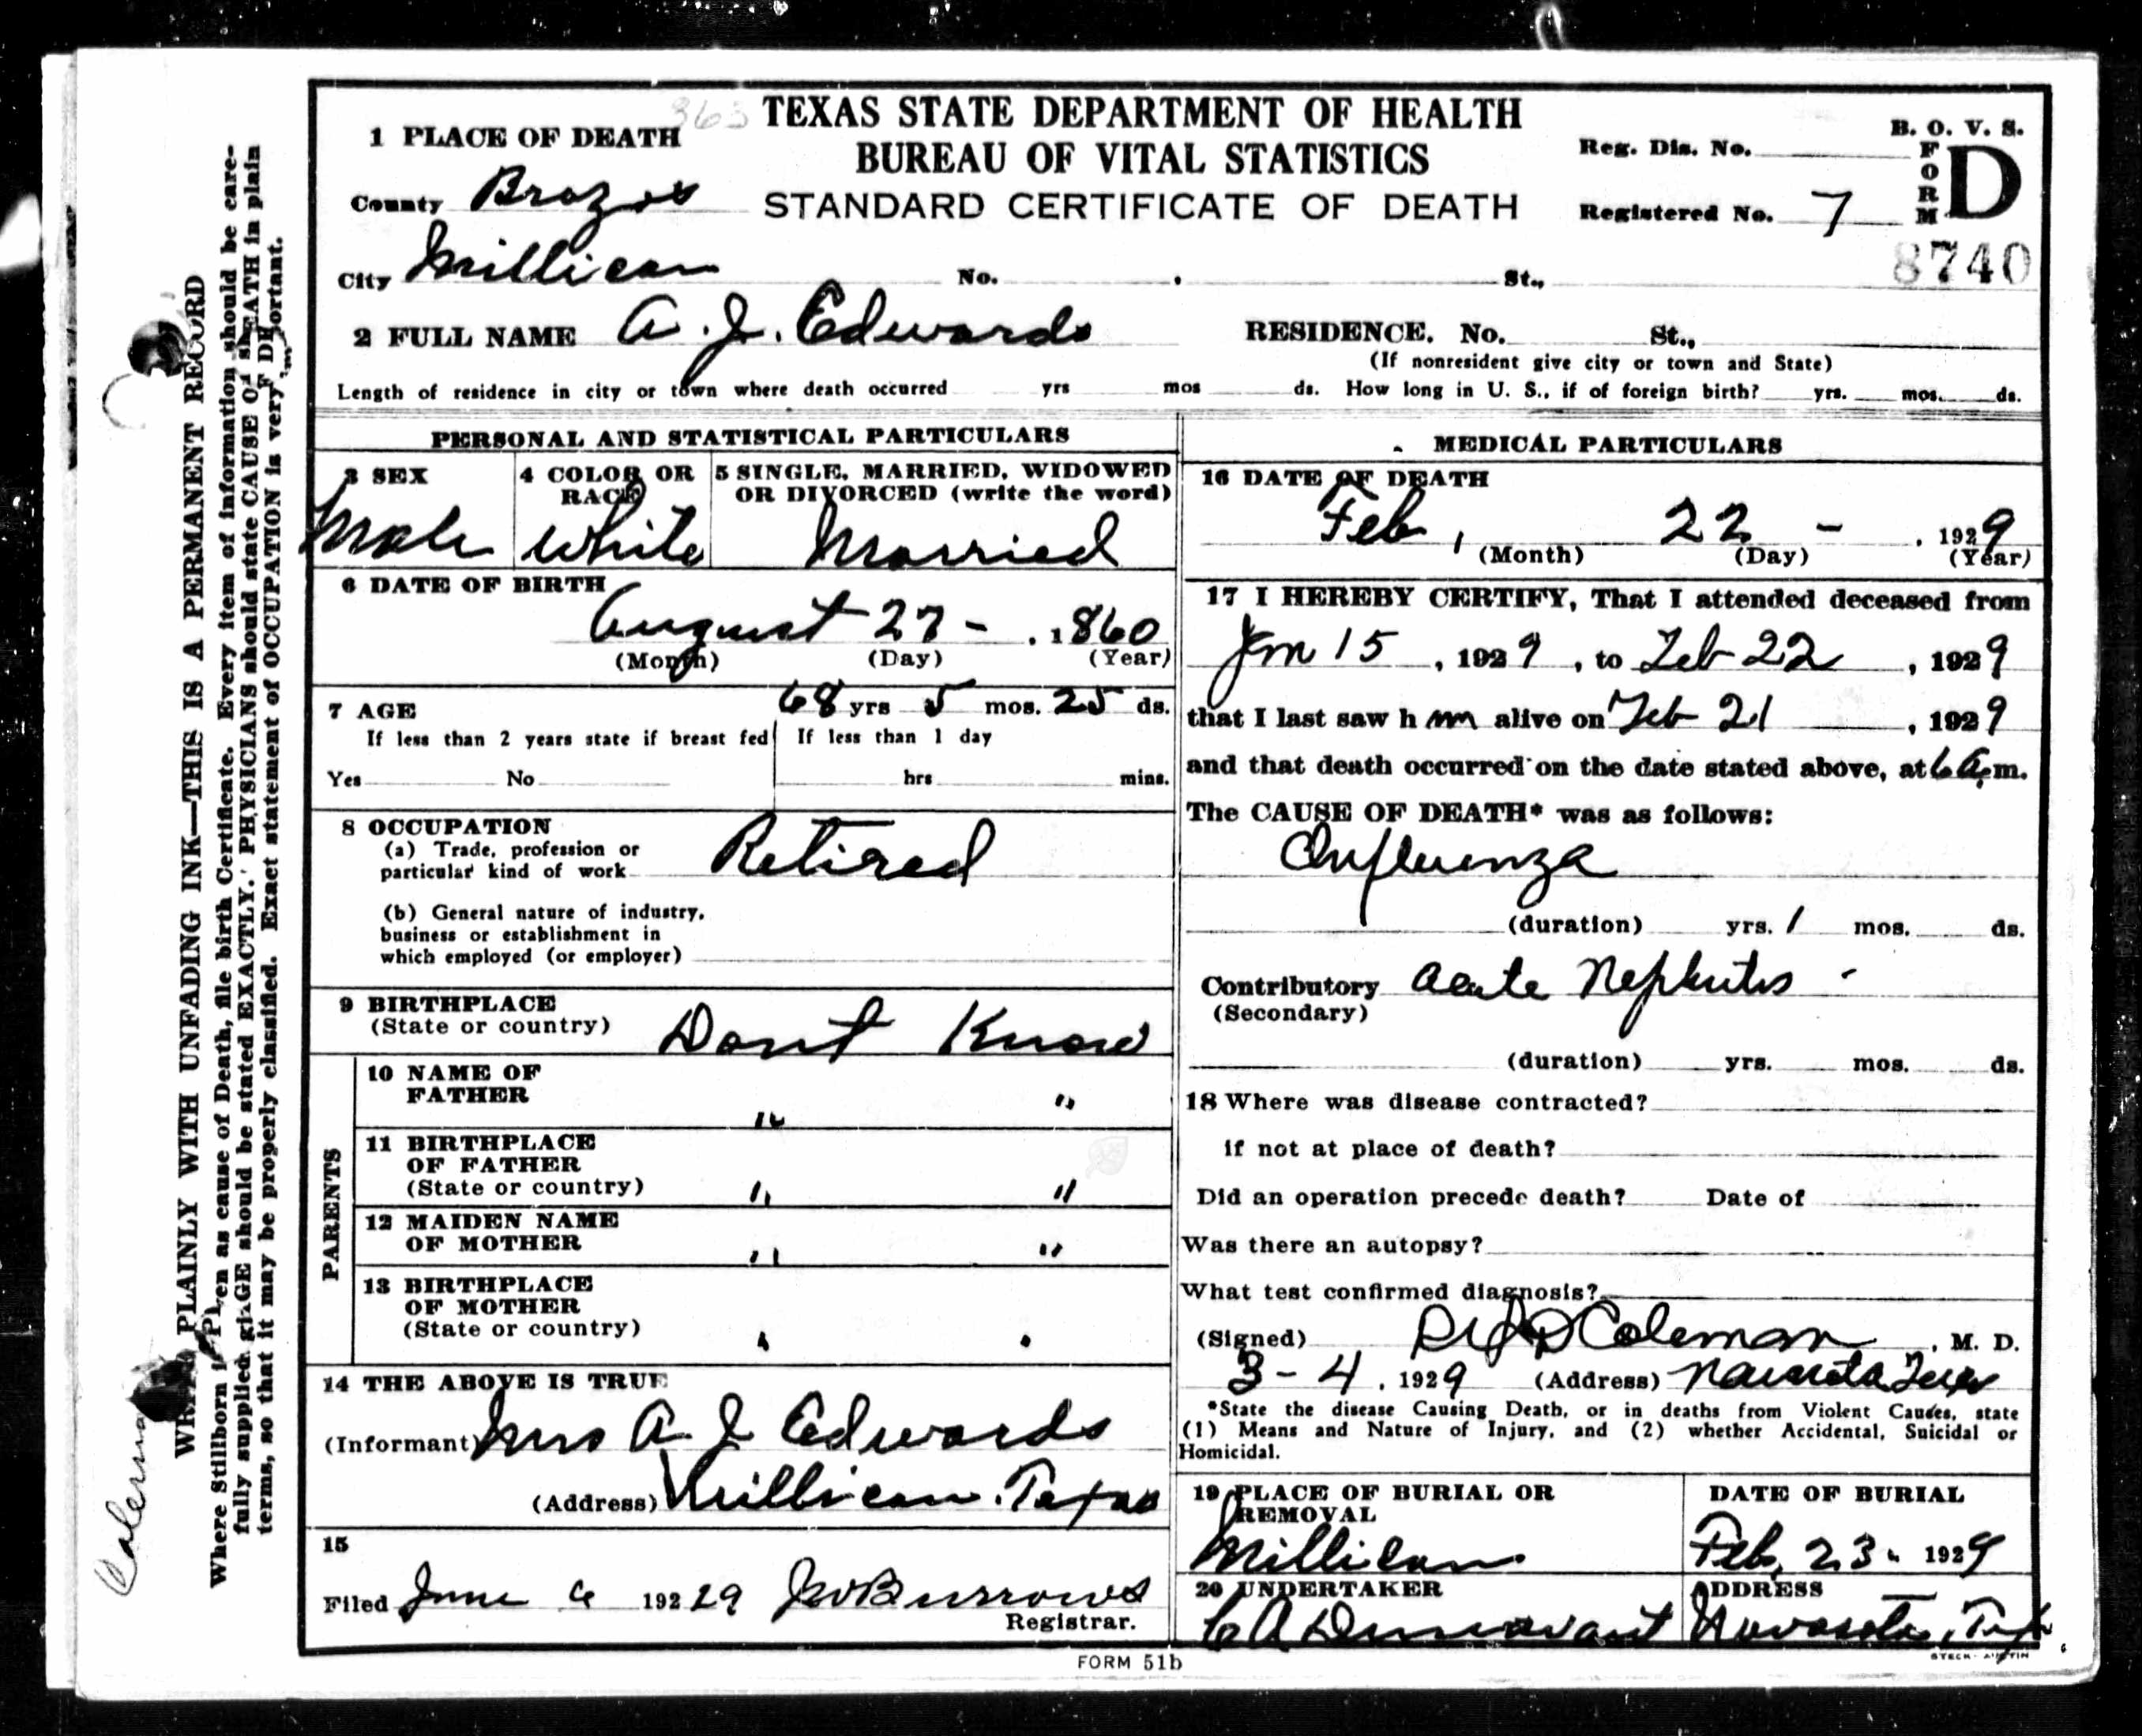 363
TEXAS STATE DEPARTMENT OF HEALTH
BUREAU OF VITAL STATISTICS
STANDARD CERTIFICATE OF DEATH
B. O. V. S.
FORM D
Reg. Dis. No.
Registered No. 7
8740
1 PLACE OF DEATH
County Brazos
City Millican No. St.,
2 FULL NAME A. J. Edwards RESIDENCE. No. St.,
(If nonresident give city or town and State)
Length of residence in city or town where death occurred yrs mos ds. How long in U. S., if of foreign birth? yrs. mos. ds.
PERSONAL AND STATISTICAL PARTICULARS
3 SEX
Male
4 COLOR OR
RACE
White
5 SINGLE, MARRIED, WIDOWED
OR DIVORCED (write the word)
Married
6 DATE OF BIRTH
August 27 - . 1860
(Month) (Day) (Year)
7 AGE 68 yrs 5 mos. 25 ds.
If less than 2 years state if breast fed
Yes No
If less than 1 day
hrs mins.
8 OCCUPATION
(a) Trade, profession or
particular kind of work Retired
(b) General nature of industry,
business or establishment in
which employed (or employer)
9 BIRTHPLACE
(State or country) Dont Know
PARENTS
10 NAME OF
FATHER " "
11 BIRTHPLACE
OF FATHER
(State or country) " "
12 MAIDEN NAME
OF MOTHER " "
13 BIRTHPLACE
OF MOTHER
(State or country) " "
14 THE ABOVE IS TRUE
(Informant) Mrs A. J. Edwards
(Address) Millican. Texas
15
Filed June 6 192 29 Burrows
Registrar.
MEDICAL PARTICULARS
16 DATE OF DEATH
Feb, 22 - . 1929
(Month) (Day) (Year)
17 I HEREBY CERTIFY, That I attended deceased from
Jan 15, 1929, to Feb 22, 1929
that I last saw h im alive on Feb 21, 1929
and that death occurred on the date stated above, at 6 A. m.
The CAUSE OF DEATH* was as follows:
Influenza
(duration) yrs. 1 mos. ds.
Contributory Acute Nephritis -
(Secondary)
(duration) yrs. mos. ds.
18 Where was disease contracted?
if not at place of death?
Did an operation precede death? Date of
Was there an autopsy?
What test confirmed diagnosis?
(Signed) Coleman, M. D.
3 - 4, 1929 (Address) Navasota Texas
*State the disease Causing Death, or in deaths from Violent Causes, state
(1) Means and Nature of Injury, and (2) whether Accidental, Suicidal or
Homicidal.
19 PLACE OF BURIAL OR
REMOVAL
Millican
DATE OF BURIAL
Feb, 23. 1929
20 UNDERTAKER
C A Dunnavant
ADDRESS
Navasota, Tex
FORM 51b
STECK-AUSTIN
WRITE PLAINLY WITH UNFADING INK—THIS IS A PERMANENT RECORD
Where Stillborn is given as cause of Death, file birth Certificate. Every item of information should be care-
fully supplied. AGE should be stated EXACTLY. PHYSICIANS should state CAUSE OF DEATH in plain
terms, so that it may be properly classified. Exact statement of OCCUPATION is very important.
Coleman